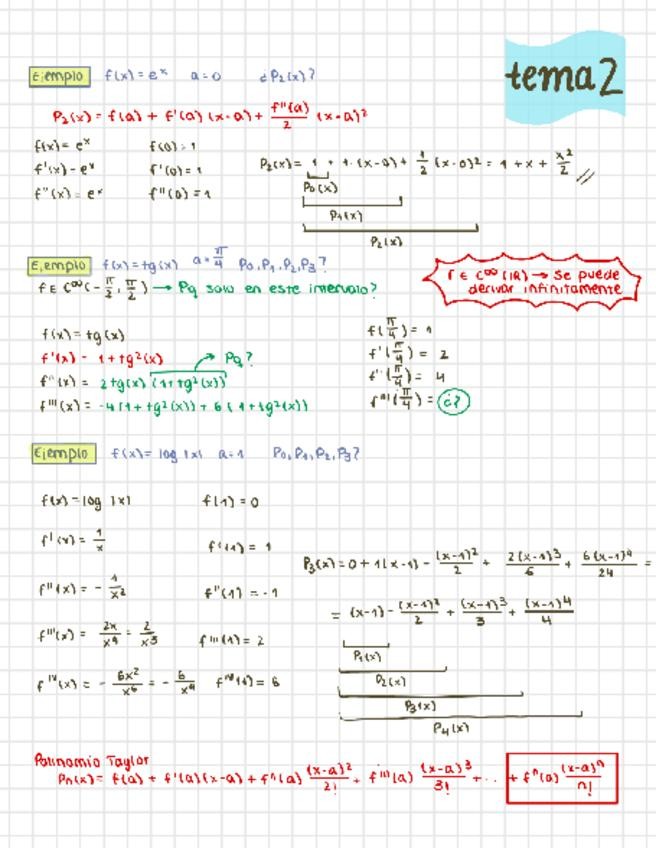 tema 2
Ejemplo f(x) = eˣ a=0 ¿P₂(x)?
P₂(x) = f(a) + f'(a) (x-a) + f''(a)/2 (x-a)²
f(x) = eˣ f(0)=1
f'(x) = eˣ f'(0)=1
f''(x) = eˣ f''(0)=1
P₂(x) = 1 + 1·(x-0) + 1/2 (x-0)² = 1 + x + x²/2 //
P₀(x)
P₁(x)
P₂(x)
Ejemplo f(x) = tg(x) a = π/4 P₀, P₁, P₂, P₃?
f ∈ C^∞(-π/2, π/2) → Pq solo en este intervalo?
f ∈ C^∞(ℝ) → Se puede
derivar infinitamente
f(x) = tg(x)
f'(x) = 1+tg²(x) → Pq?
f''(x) = 2tg(x) (1+tg²(x))
f'''(x) = -4(1+tg²(x)) + 6(1+tg²(x))
f(π/4) = 1
f'(π/4) = 2
f''(π/4) = 4
f'''(π/4) = ¿?
Ejemplo f(x) = log |x| a=1 P₀, P₁, P₂, P₃?
f(x) = log |x| f(1) = 0
f'(x) = 1/x f'(1) = 1
f''(x) = - 1/x² f''(1) = -1
f'''(x) = 2x/x⁴ = 2/x³ f'''(1) = 2
f^IV(x) = - 6x²/x⁶ = - 6/x⁴ f^IV(1) = 6
P₃(x) = 0 + 1(x-1) - (x-1)²/2 + 2(x-1)³/6 + 6(x-1)⁴/24 =
= (x-1) - (x-1)²/2 + (x-1)³/3 + (x-1)⁴/4
P₁(x)
P₂(x)
P₃(x)
P₄(x)
Polinomio Taylor
Pn(x) = f(a) + f'(a)(x-a) + f''(a) (x-a)²/2! + f'''(a) (x-a)³/3! + ... + fⁿ(a) (x-a)ⁿ/n!